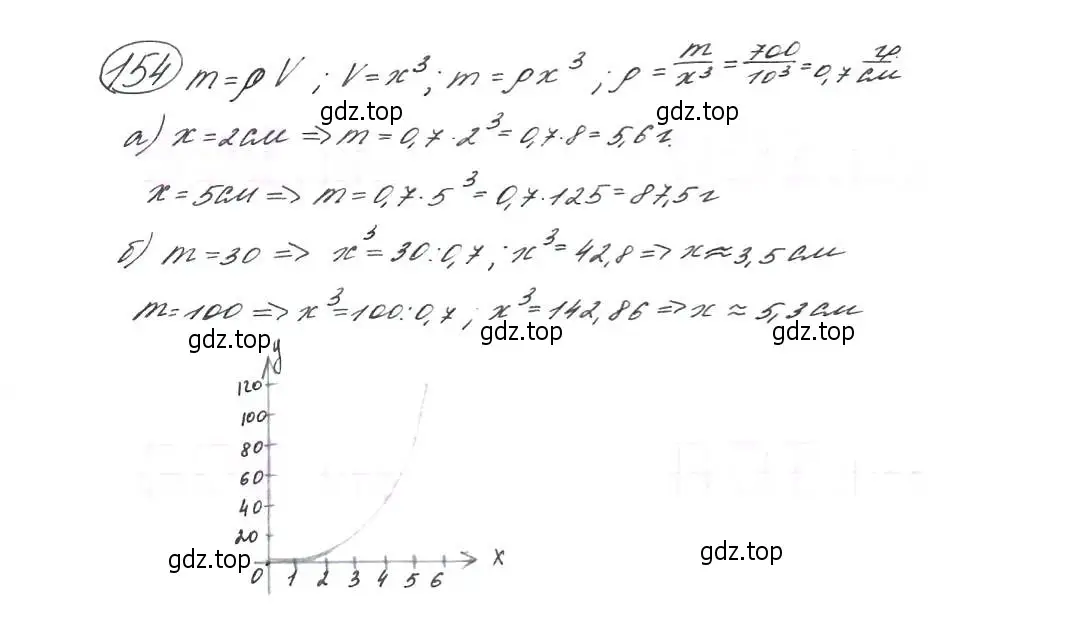 154 m=ρV ; V=x³; m=ρx³ ; ρ = m/x³ = 700/10³ = 0,7 гр/см
gdz.top gdz.top
а) x=2см => m=0,7·2³=0,7·8=5,6г.
x=5см => m=0,7·5³=0,7·125=87,5г
б) m=30 => x³=30:0,7 ; x³=42,8 => x≈3,5см
m=100 => x³=100:0,7 ; x³=142,86 => x≈5,3см
gdz.top gdz.top gdz.top
y
120
100
80
60
40
20
gdz.top 0 1 2 3 4 5 6 x
gdz.top